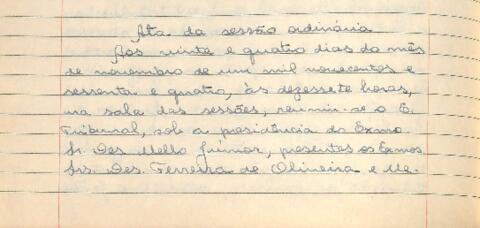 Ata da sessão ordinária
Aos vinte e quatro dias do mês
de novembro de um mil novecentos e
sessenta e quatro, às dezessete horas,
na sala das sessões, reuniu-se o E.
Tribunal, sob a presidência do Exmo.
Sr. Des Mello Júnior, presentes os Exmos.
Srs. Des. Ferreira de Oliveira e Me-